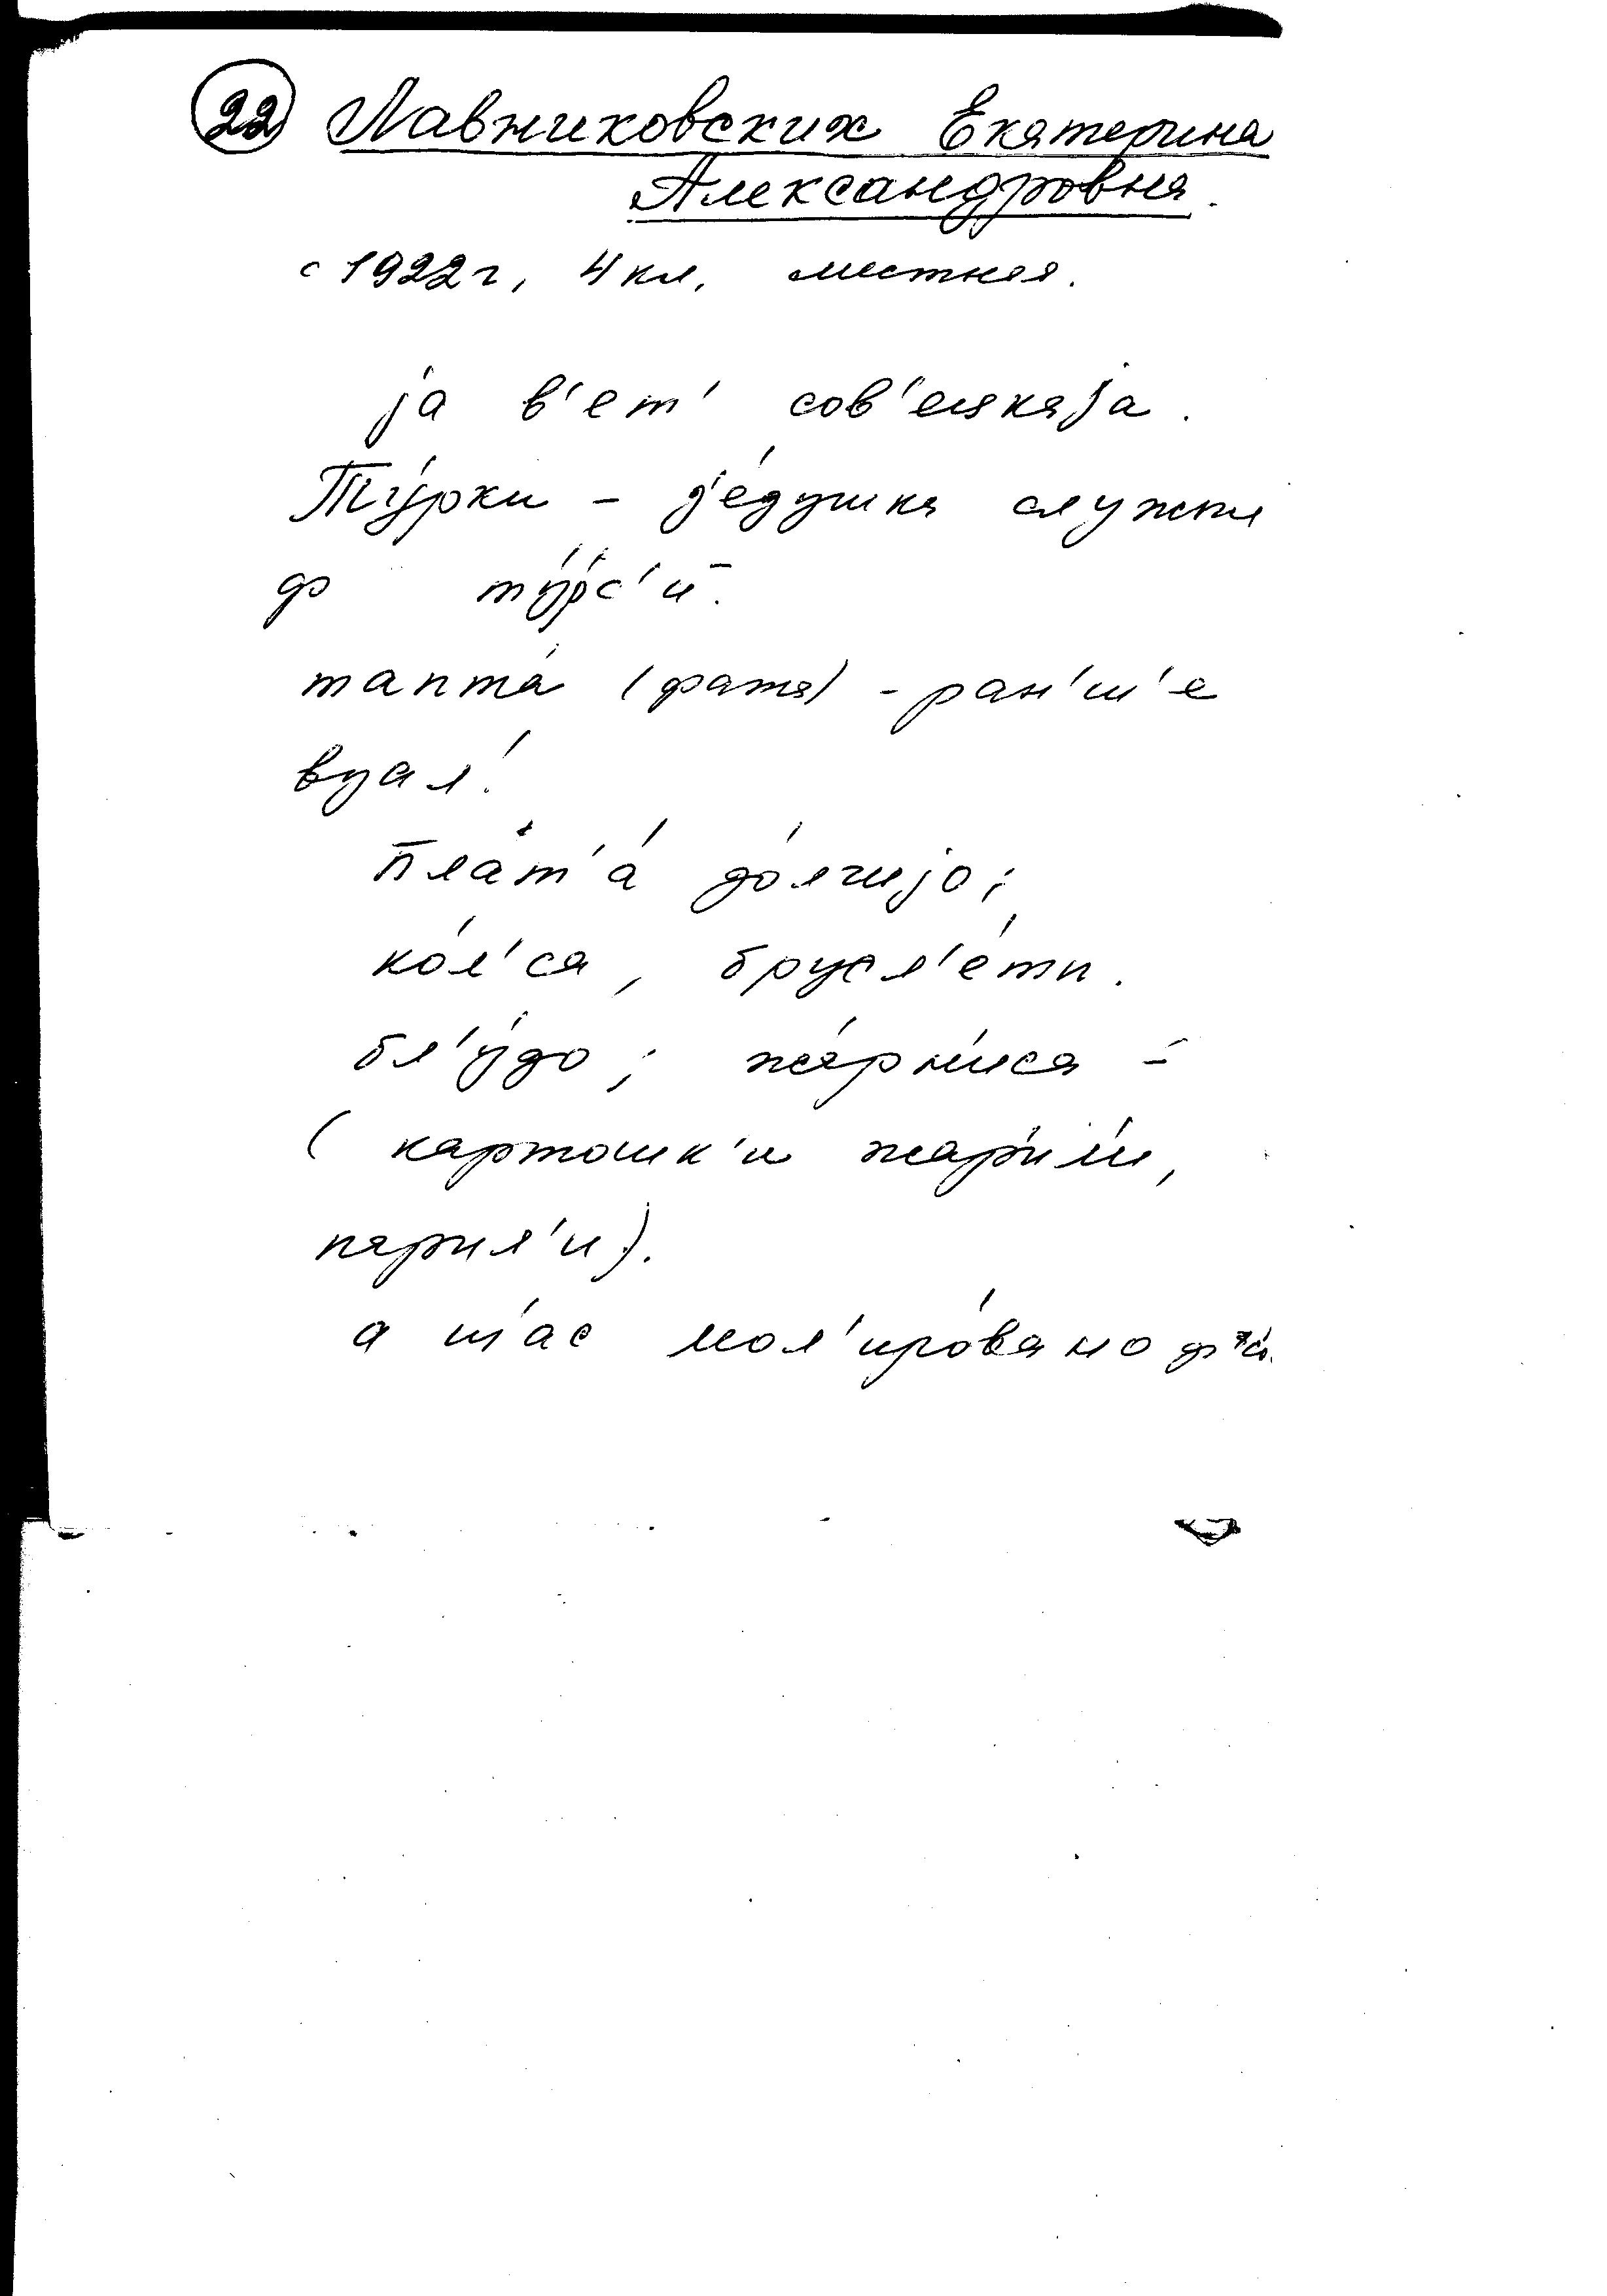 22 Лавниковских Екатерина
Александровна.
с 1922 г, 4 кл. местная.
jа в'ет' сов'ецкаjа.
Ту́рки - д'е́душка служил
ф ту́рс'и.
тапта́ (фата) - ран'ш'е
вуал'.
пла́т'а до́лгиjо;
ко́л'са, брусл'е́ты.
бл'у́до; жарни́са -
(картошк'и жарили,
парил'и).
а ш'ас мол'иро́вано